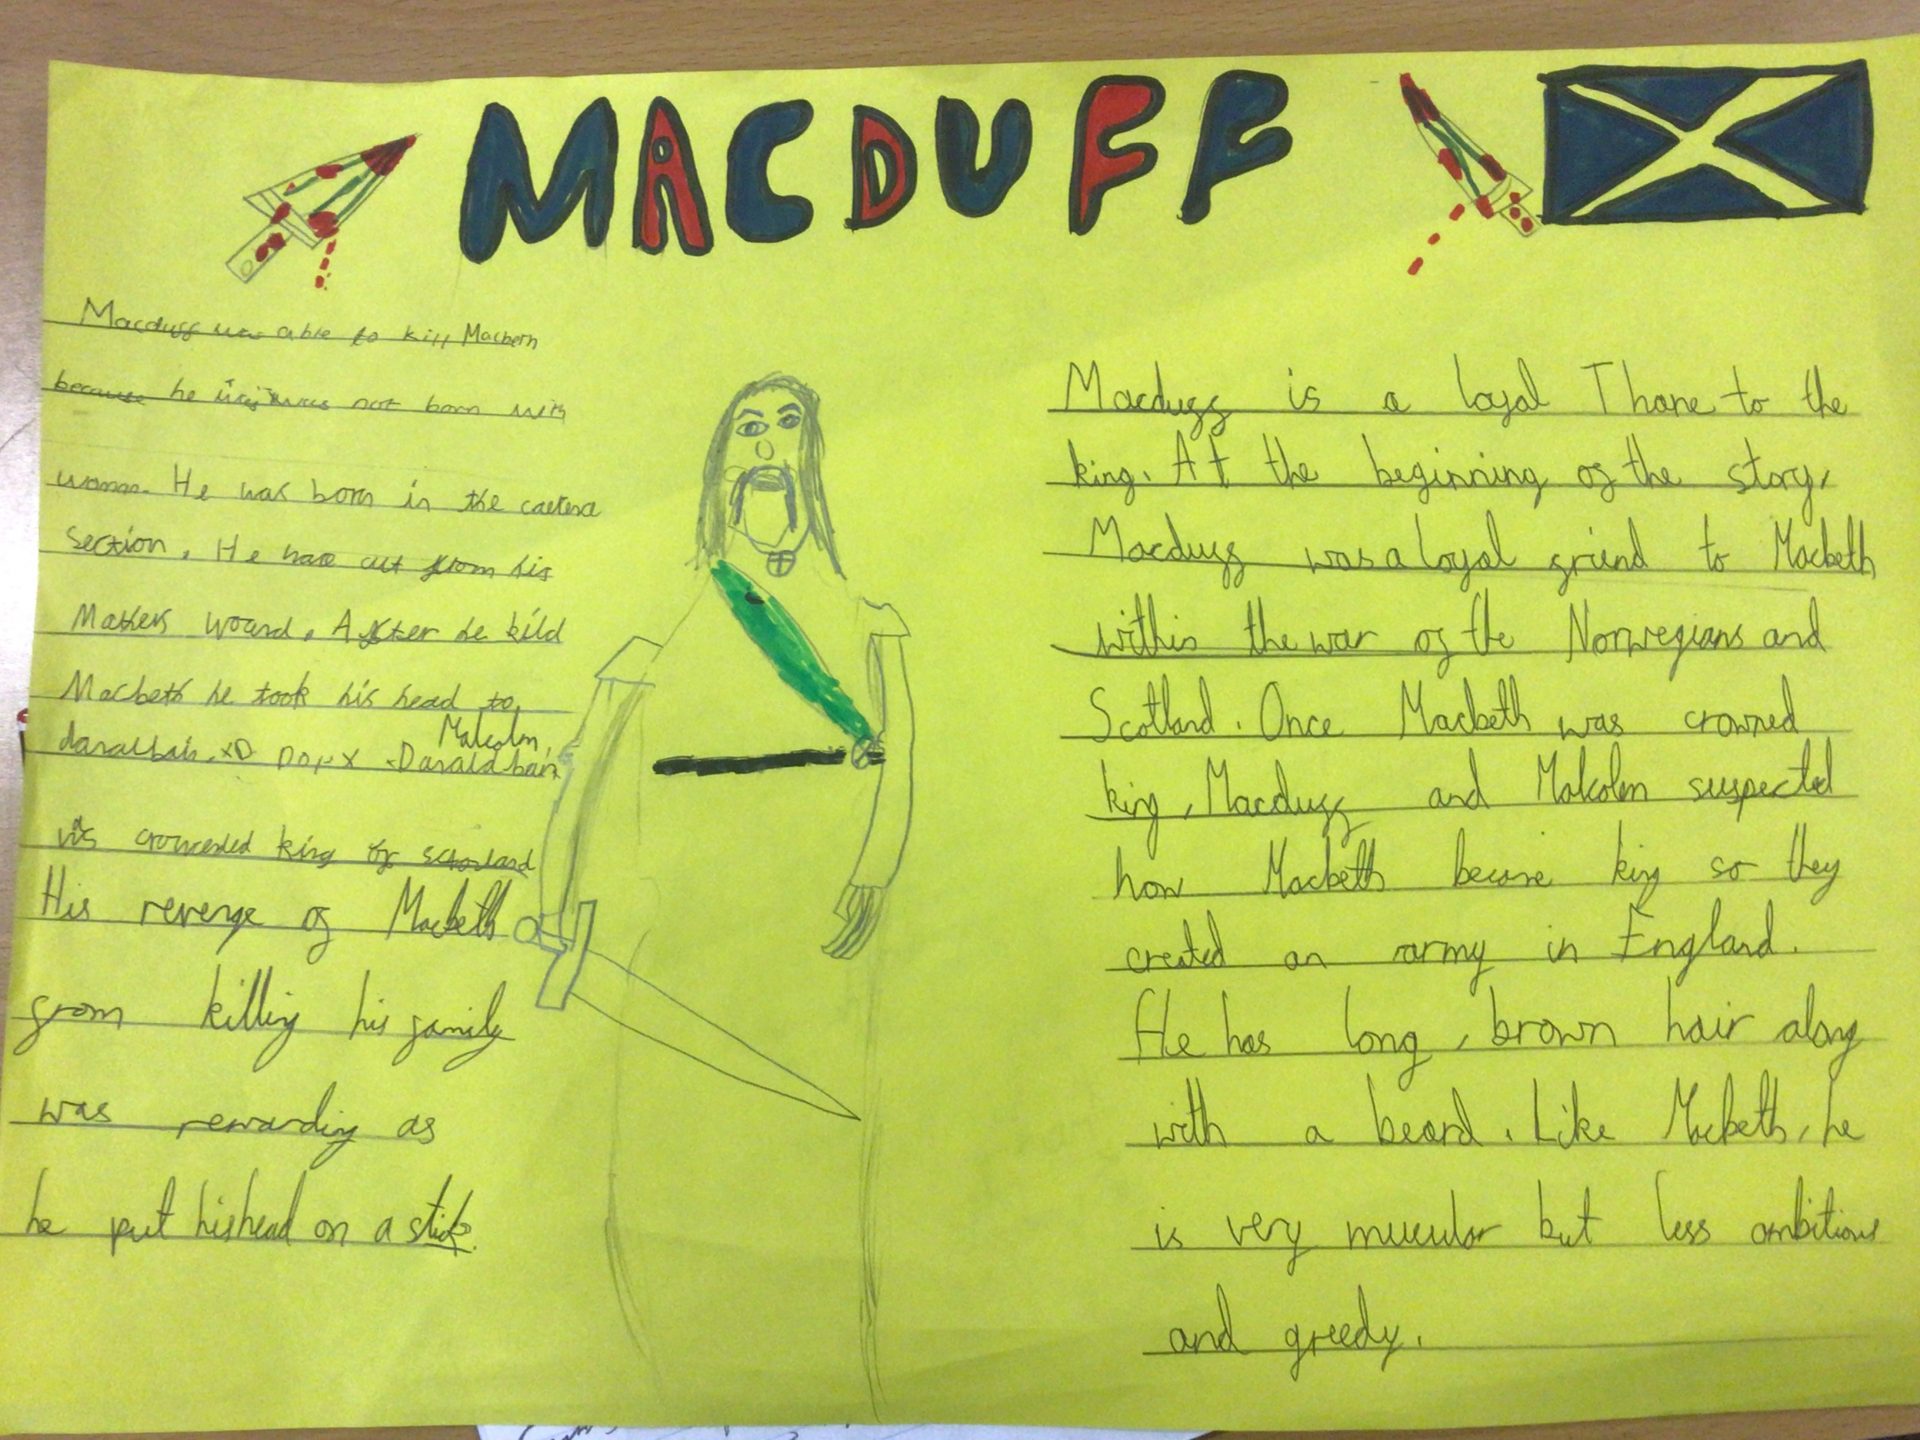 MACDUFF
Macduff was able to kill Macbeth
because he was not born with
woman. He was born in the
section. He was cut from his
Mothers . After he kild
Macbeth he took his head to
Malcolm,
Donaldbain
was king of
His revenge of Macbeth
from killing his family
was rewarding as
he put his head on a stick.
Macduff is a loyal Thane to the
king. At the beginning of the story,
Macduff was a loyal friend to Macbeth
within the war of the Norwegians and
Scotland. Once Macbeth was crowned
king, Macduff and Malcolm suspected
how Macbeth became king so they
created an army in England.
He has long, brown hair along
with a beard. Like Macbeth, he
is very muculor but less ambitious
and greedy.